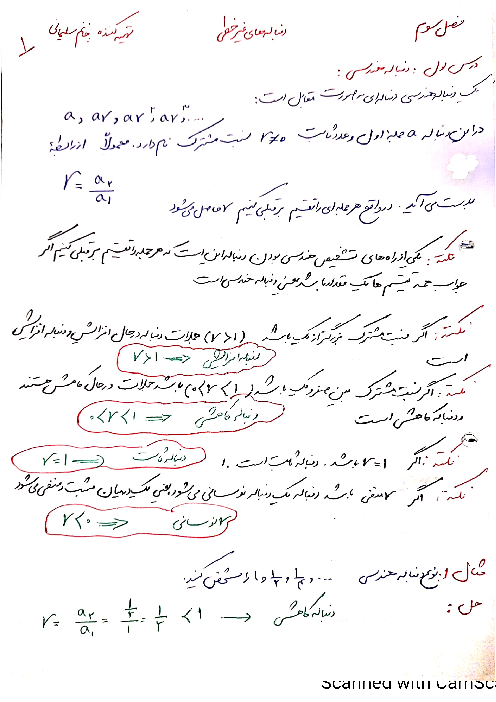 فصل سوم دنباله‌های غیر خطی تهیه کننده: خانم سلیمانی ۱
درس اول: دنباله هندسی:
یک دنباله هندسی دنباله‌ای به صورت مقابل است:
a, ar, ar², ar³, ...
در این دنباله a جمله اول و عدد ثابت r≠0 نسبت مشترک نام دارد. معمولاً r از رابطه
r = a₂/a₁
بدست می‌آید. در واقع هر جمله‌ای را تقسیم بر قبلی کنیم r حاصل می‌شود
نکته: یکی از راه‌های تشخیص هندسی بودن دنباله این است که هر جمله را تقسیم بر قبلی کنیم اگر
جواب همه تقسیم ها یک مقدار باشد یعنی دنباله هندسی است
نکته: اگر نسبت مشترک بزرگتر از یک باشد (r>1) جملات دنباله در حال افزایش و دنباله افزایشی
است
r>1 ⟸ دنباله افزایشی
نکته: اگر نسبت مشترک بین صفر و یک باشد (0<r<1) باشد جملات در حال کاهش هستند
و دنباله کاهشی است
0<r<1 ⟸ دنباله کاهشی
نکته: اگر r=1 باشد. دنباله ثابت است.
r=1 ⟸ دنباله ثابت
نکته: اگر r منفی باشد دنباله یک دنباله نوسانی می‌شود یعنی یک درمیان مثبت و منفی می‌شود
r<0 ⟹ نوسانی
مثال ۱: نوع دنباله هندسی ... , 1/4 , 1/2 , 1 را مشخص کنید.
حل:
r = a₂/a₁ = (1/2)/1 = 1/2 < 1 ⟶ دنباله کاهشی
Scanned with CamSc